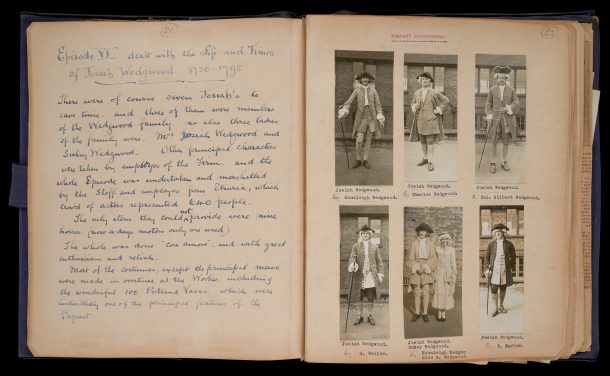 21
Episode VI dealt with the Life and Times
of Josiah Wedgwood. 1730-1795
There were of course seven Josiah's to
cast and three of them were members
of the Wedgwood family, as also three ladies
of the family were. Mrs Josiah Wedgwood and
Sukey Wedgwood. Other principal characters
were taken by employees of the Firm. and the
whole Episode was undertaken and marshalled
by the Staff and employees from Etruria, which
crowd of actors represented people.
The only item they could not provide were nine
horses (now-a-days motors only are used)
The whole was done "con amore" and with great
enthusiasm and relish.
Most of the costumes, except the principal mens,
were made in overtime at the Works including
the wonderful 100 Portland Vases, which were
undoubtedly one of the principal features of the
Pageant.
22
PAGEANT PHOTOGRAPHS.
Josiah Wedgwood.
by Hensleigh Wedgwood.
Josiah Wedgwood.
by Charles Wedgwood.
Josiah Wedgwood.
by Col. Gilbert Wedgwood.
Josiah Wedgwood.
by S. Mellor.
Josiah Wedgwood.
Sukey Wedgwood.
by Hensleigh Wedgwo
Miss Wedgwood
Josiah Wedgwood.
by T. Barlow.